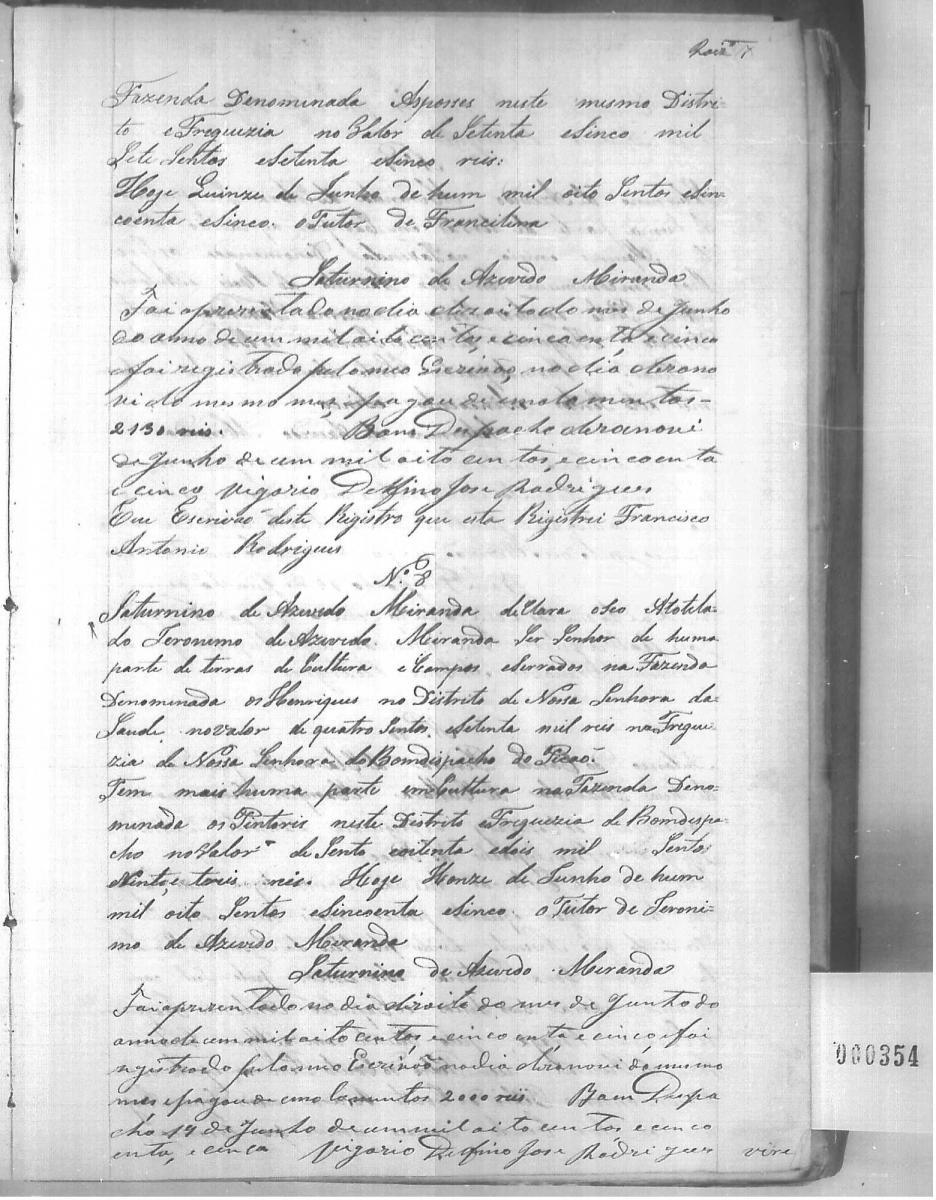 7
Fazenda Denominada Asposses neste mesmo Distri-
to eFreguizia no Valor de Setenta eSinco mil
Sete Sentos eSetenta eSinco reis:
Hoje Quinze de Junho de hum mil oito Sentos eSin-
coenta eSinco. oTutor de Francilina
Saturnino de Azevedo Miranda
Foi aprezentado no dia dezoito do mes de Junho
do anno de um mil oito centos, e cincoenta, e cinco
e foi registrado pelo meo Escrivaõ, no dia dezano
ve do mesmo mes, pagou de emolumentos-
2130 reis. Bom Despacho dezanove
de Junho de um mil oito centos, e cincoenta
e cinco Vigario Delfino Jose Rodrigues
Eu Escrivaõ deste Rigistro que esta Rigistrei Francisco
Antonio Rodrigues
N.º 8
Saturnino de Azevedo Miranda deClara oseo Atotila-
do Jeronimo de Azevedo Miranda Ser Senhor de huma
parte de terras de Cultura e Campos eSerrados na Fazenda
Denominada os Henriques no Distrito de Nossa Senhora da
Saude, no valor de quatro Sentos, eSetenta mil reis na Fregui-
zia de Nossa Senhora do Bomdispacho do Picaõ.
Tem mais huma parte em Cultura na Fazenda Deno-
minada os Pintoris neste Distrito eFreguizia de Bomdespa-
cho no Valor de Sento eoitenta edois mil Sento
e treis reis. Hoje Honze de Junho de hum
mil oito Sentos eSincoenta eSinco. oTutor de Jeroni-
mo de Azevedo Miranda
Saturnino de Azevedo Miranda
Foi aprezentado no dia dizoito do mes de Junho do
anno de um mil oito centos, e cincoenta, e cinco e foi
registrado pelo meo Escrivaõ no dia dezanove do mesmo
mes e pagou de emolumentos 2000 reis Bom Despa
cho 19 de Junho de um mil oito centos e cinco
enta, e cinco Vigario Delfino Jose Rodrigues
vire
000354